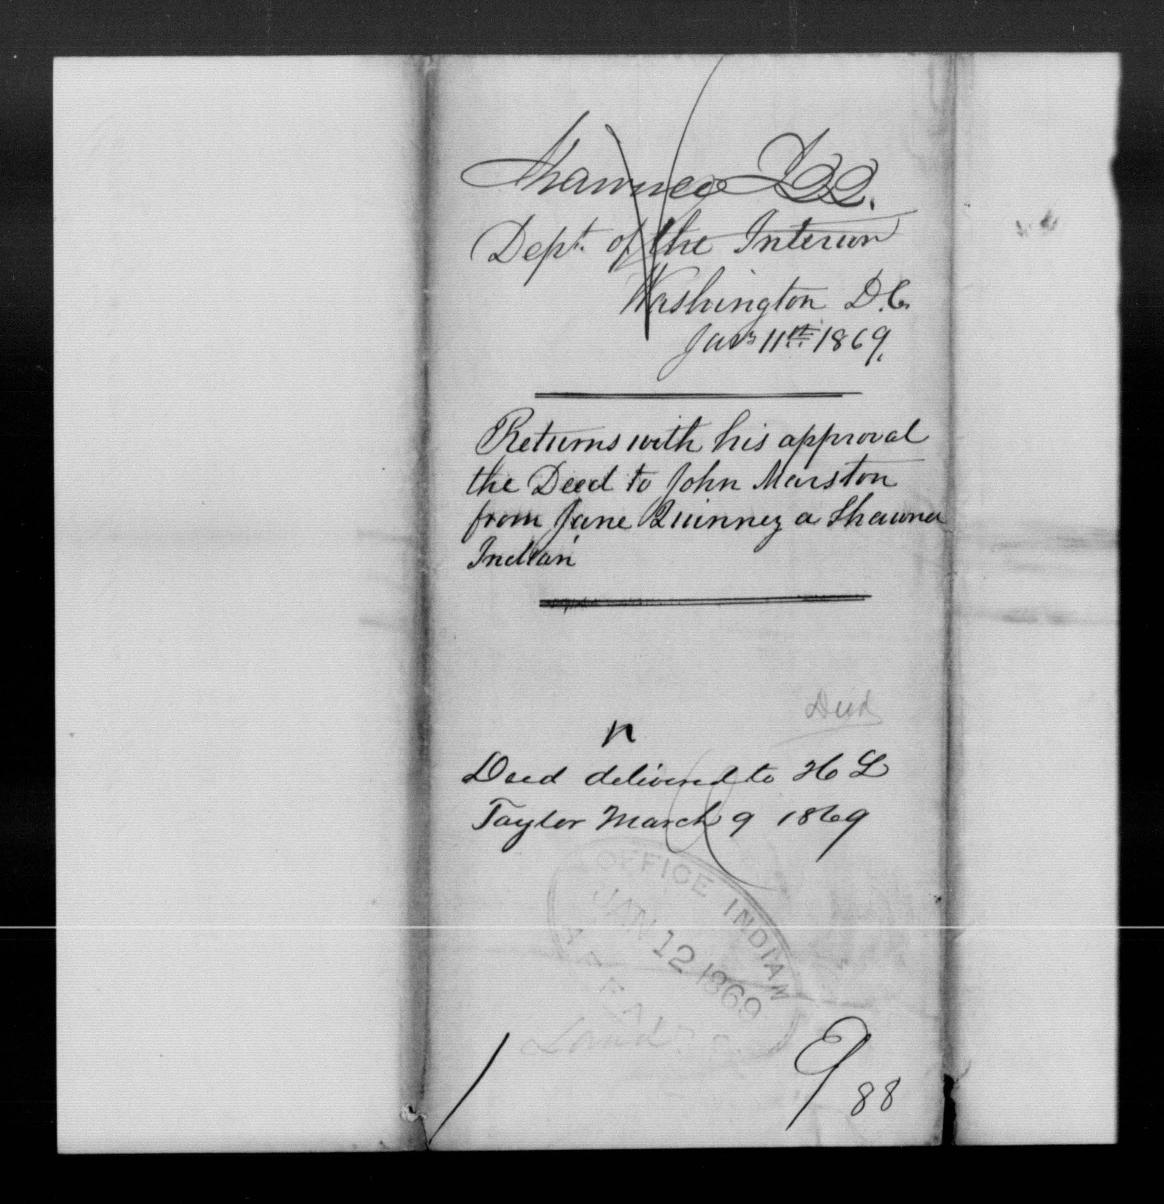 Shawnee
Dept. of the Interior
Washington D.C.
Jany 11th 1869.
Returns with his approval
the Deed to John Marston
from Jane Quinney a Shawnee
Indian
Deed
n
Deed delivered to H L
Taylor March 9 1869
OFFICE INDIAN
JAN 12 1869
AFFAIRS
Land
88